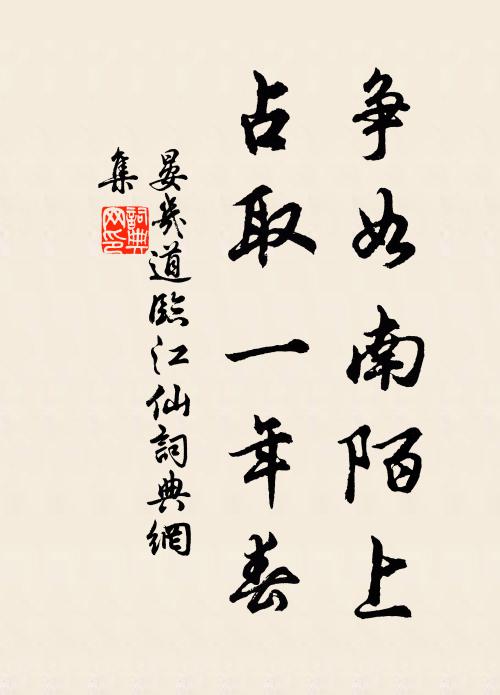 争如南陌上
占取一年春
晏幾道臨江仙詞典網
集
詞典
网印